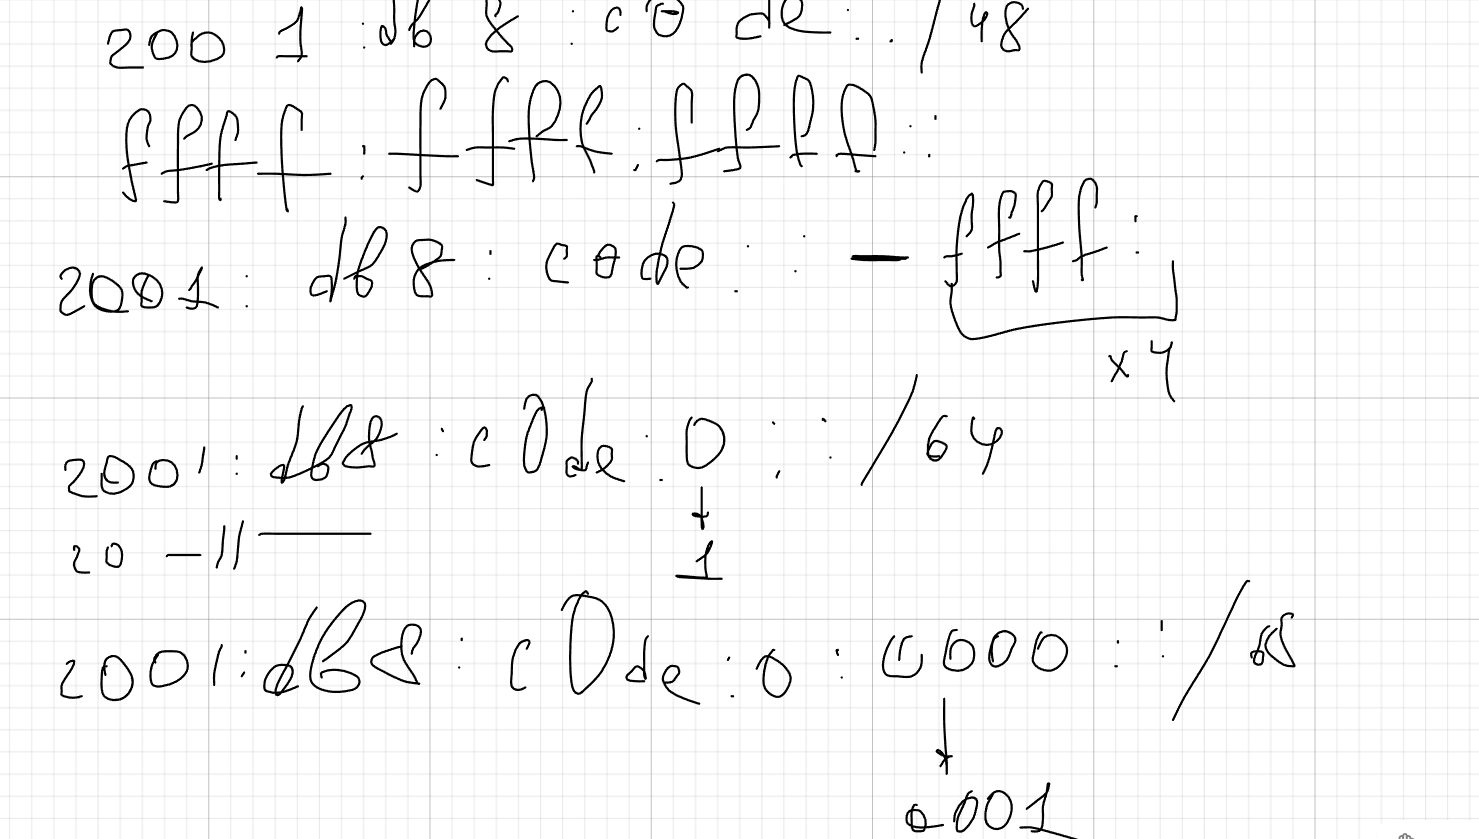 2001:db8:c0de::/48
ffff:ffff:ffff::
2001:db8:code:: - ffff:
x4
2001:db8:c0de:0::/64
20 -11-
1
2001:db8:c0de:0:0000::/68
0001